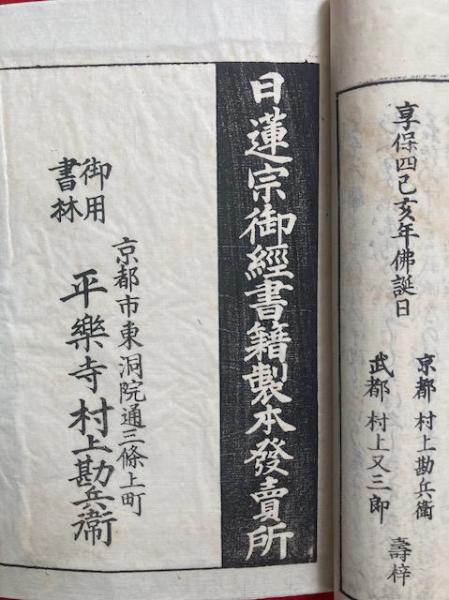 享保四己亥年佛誕日
京都 村上勘兵衛
武都 村上又三郎
壽梓
日蓮宗御經書籍製本發賣所
御用
書林
京都市東洞院通三條上町
平樂寺 村上勘兵衛